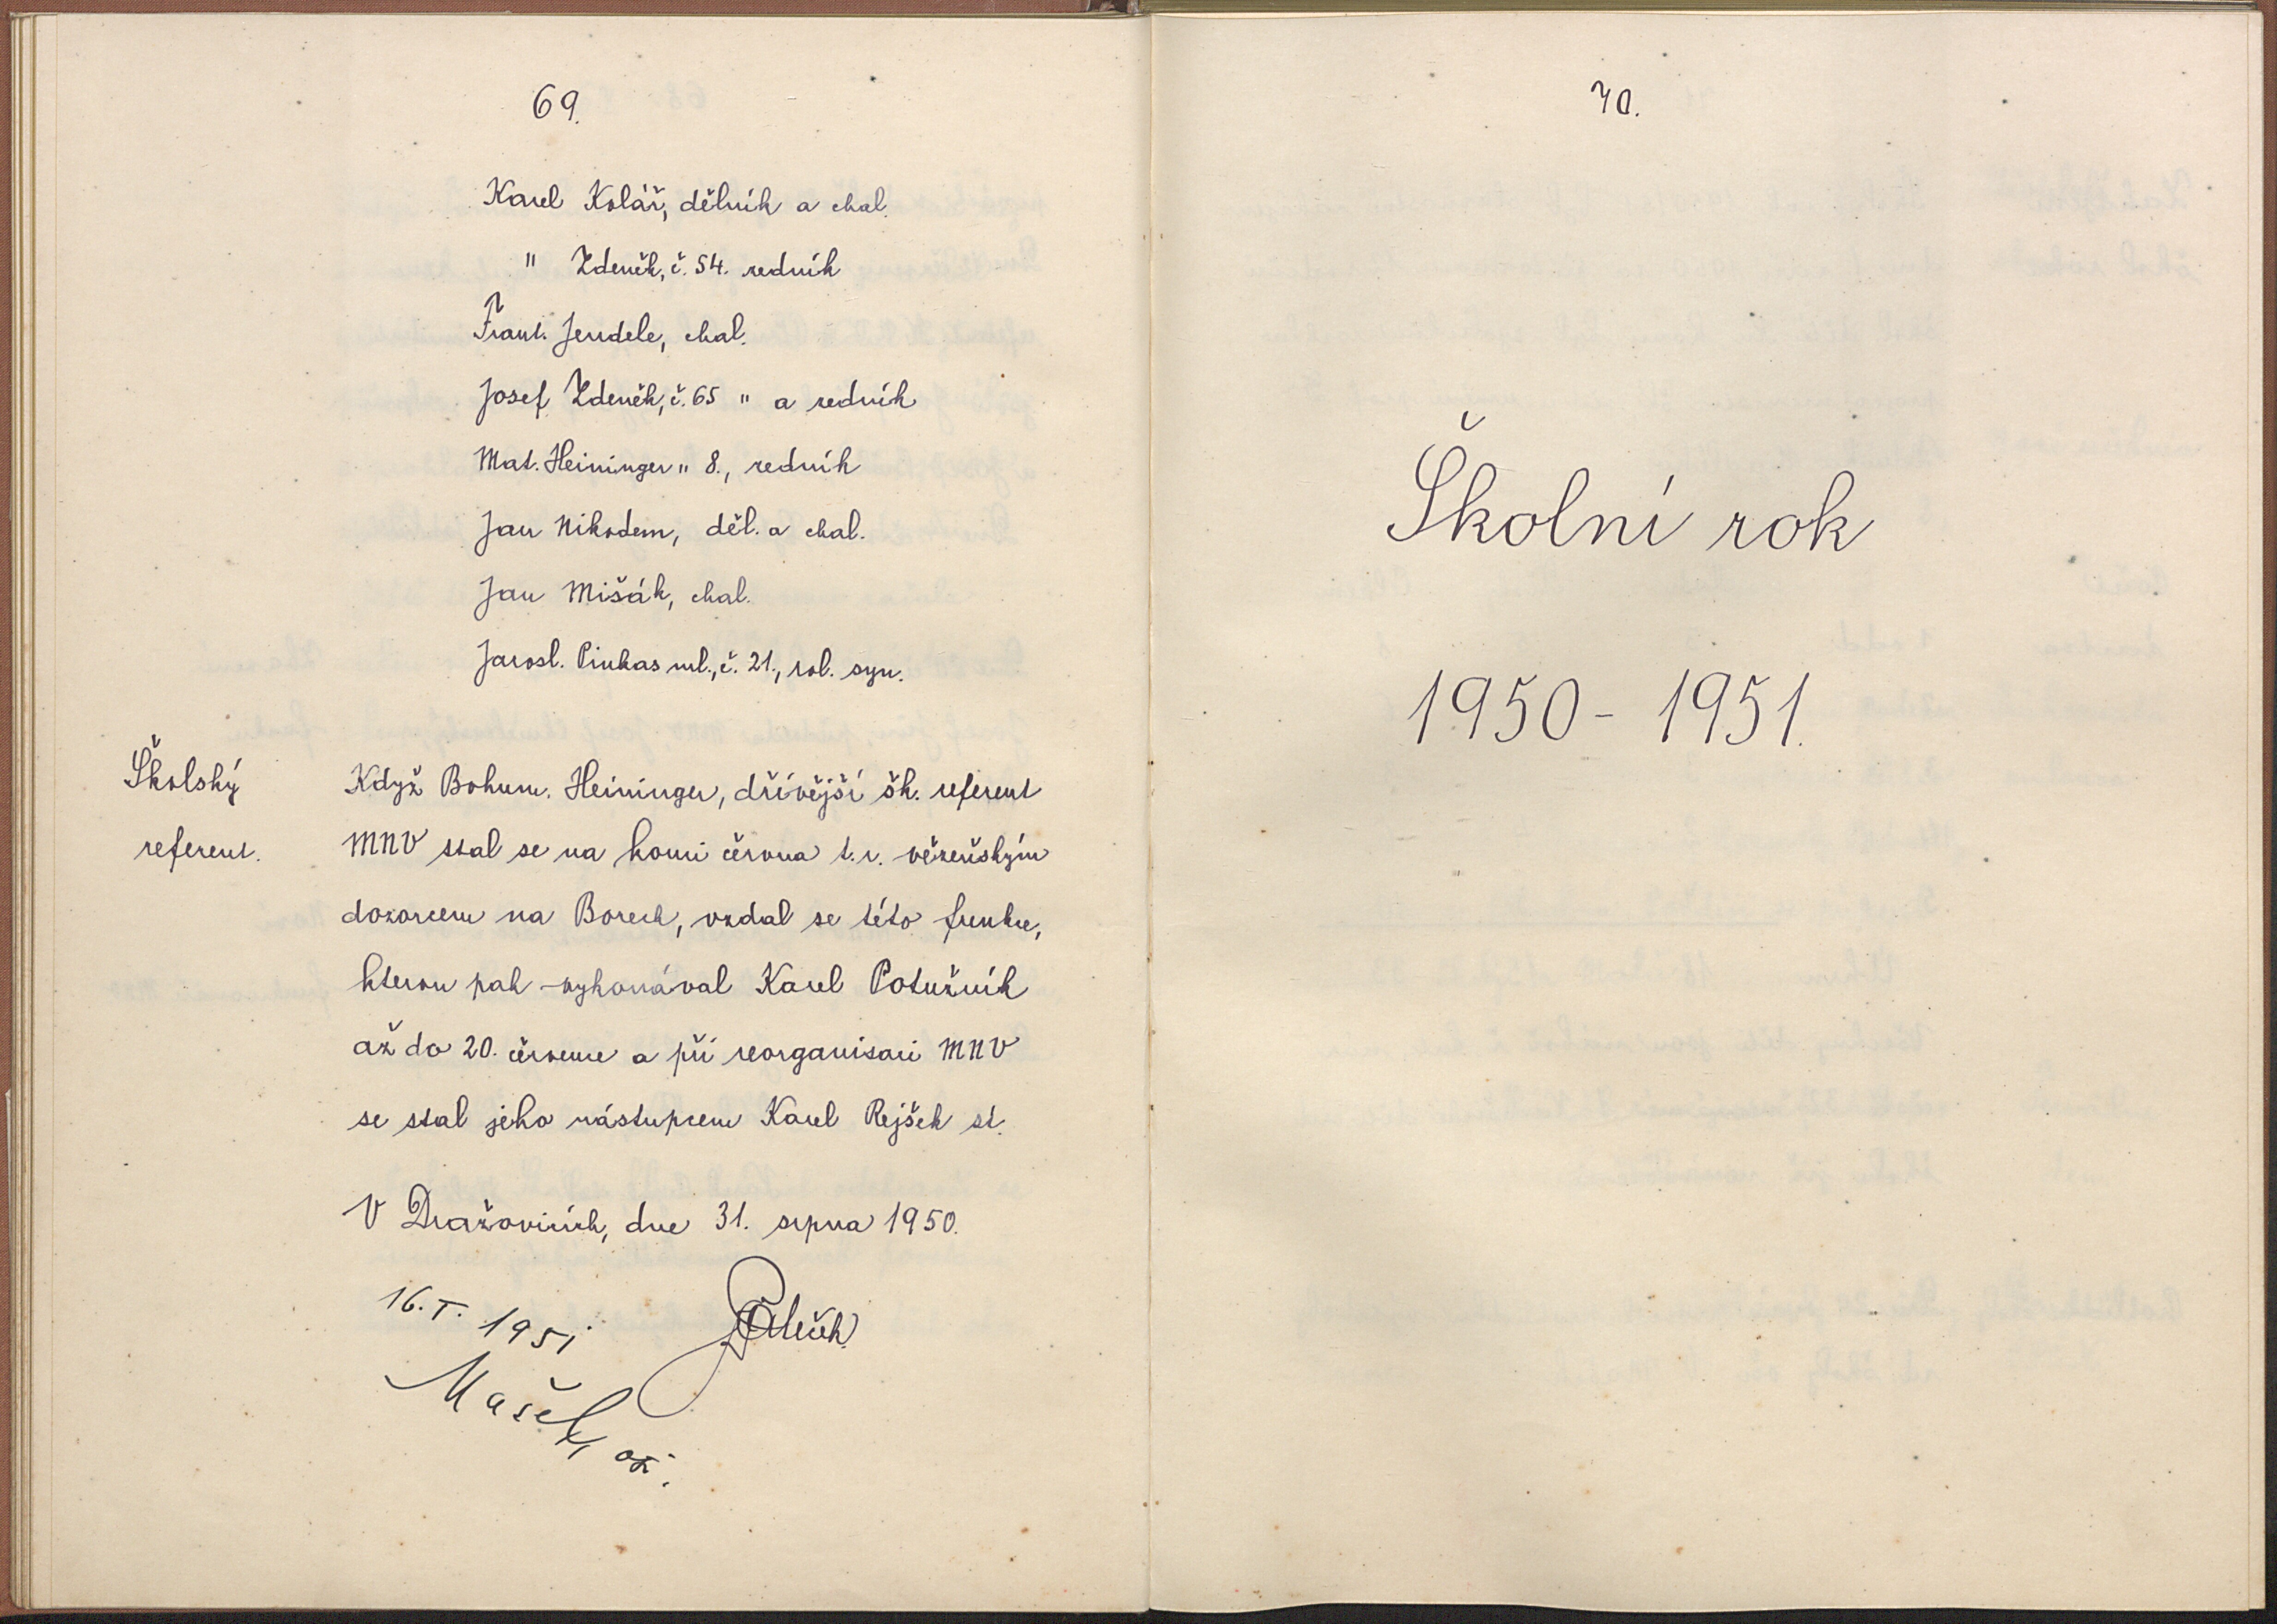 69.
Karel Kolář, dělník a chal.
" Zdeněk, č. 54. zedník
Frant. Jendele, chal.
Josef Zdeněk, č. 65 " a zedník
Mat. Heininger " 8., zedník
Jan Nikodem, děl. a chal.
Jan Mišák, chal.
Jarosl. Pinkas ml., č. 21., rol. syn.
Školský
referent.
Když Bohum. Heininger, dřívější šk. referent
MNV stal se na konci června t.r. vězeňským
dozorcem na Borech, vzdal se této funkce,
kterou pak vykonával Karel Potužník
až do 20. července a při reorganisaci MNV
se stal jeho nástupcem Karel Rejšek st.
V Dražovicích, dne 31. srpna 1950.
16. I. 1951
Mašek,
70.
Školní rok
1950 - 1951.